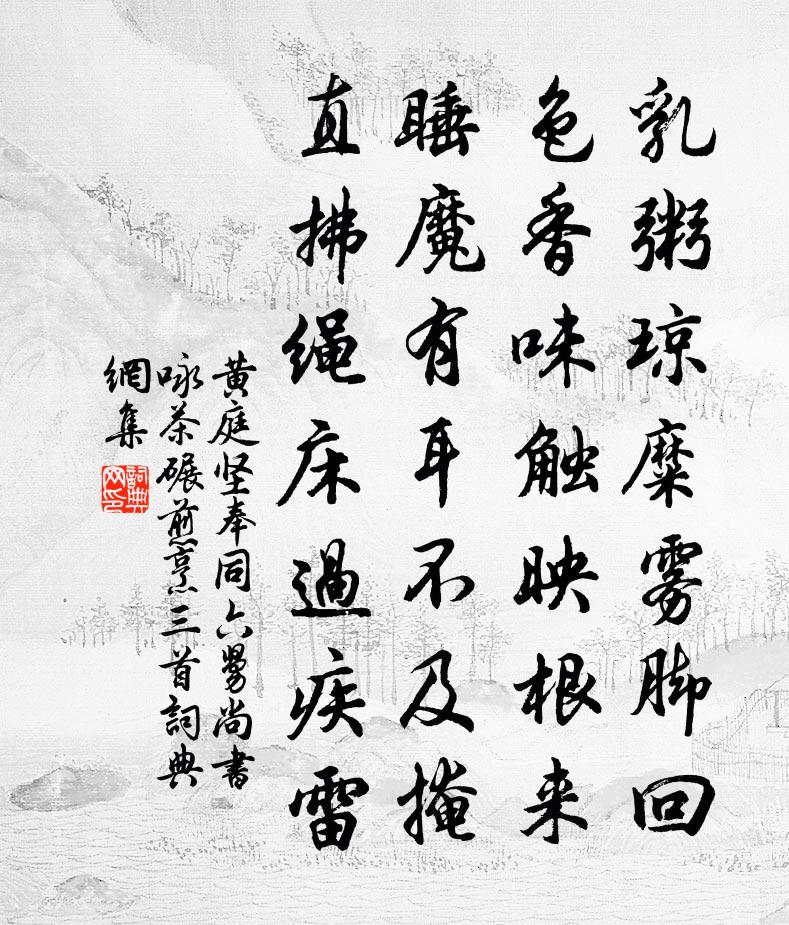 乳粥琼糜雾脚回
色香味触映根来
睡魔有耳不及掩
直拂绳床過疾雷
黄庭坚奉同六舅尚書
咏茶碾煎烹三首詞典
網集
詞典
网印